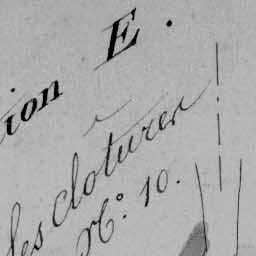 ion E.
les cloturer
N.º 10.